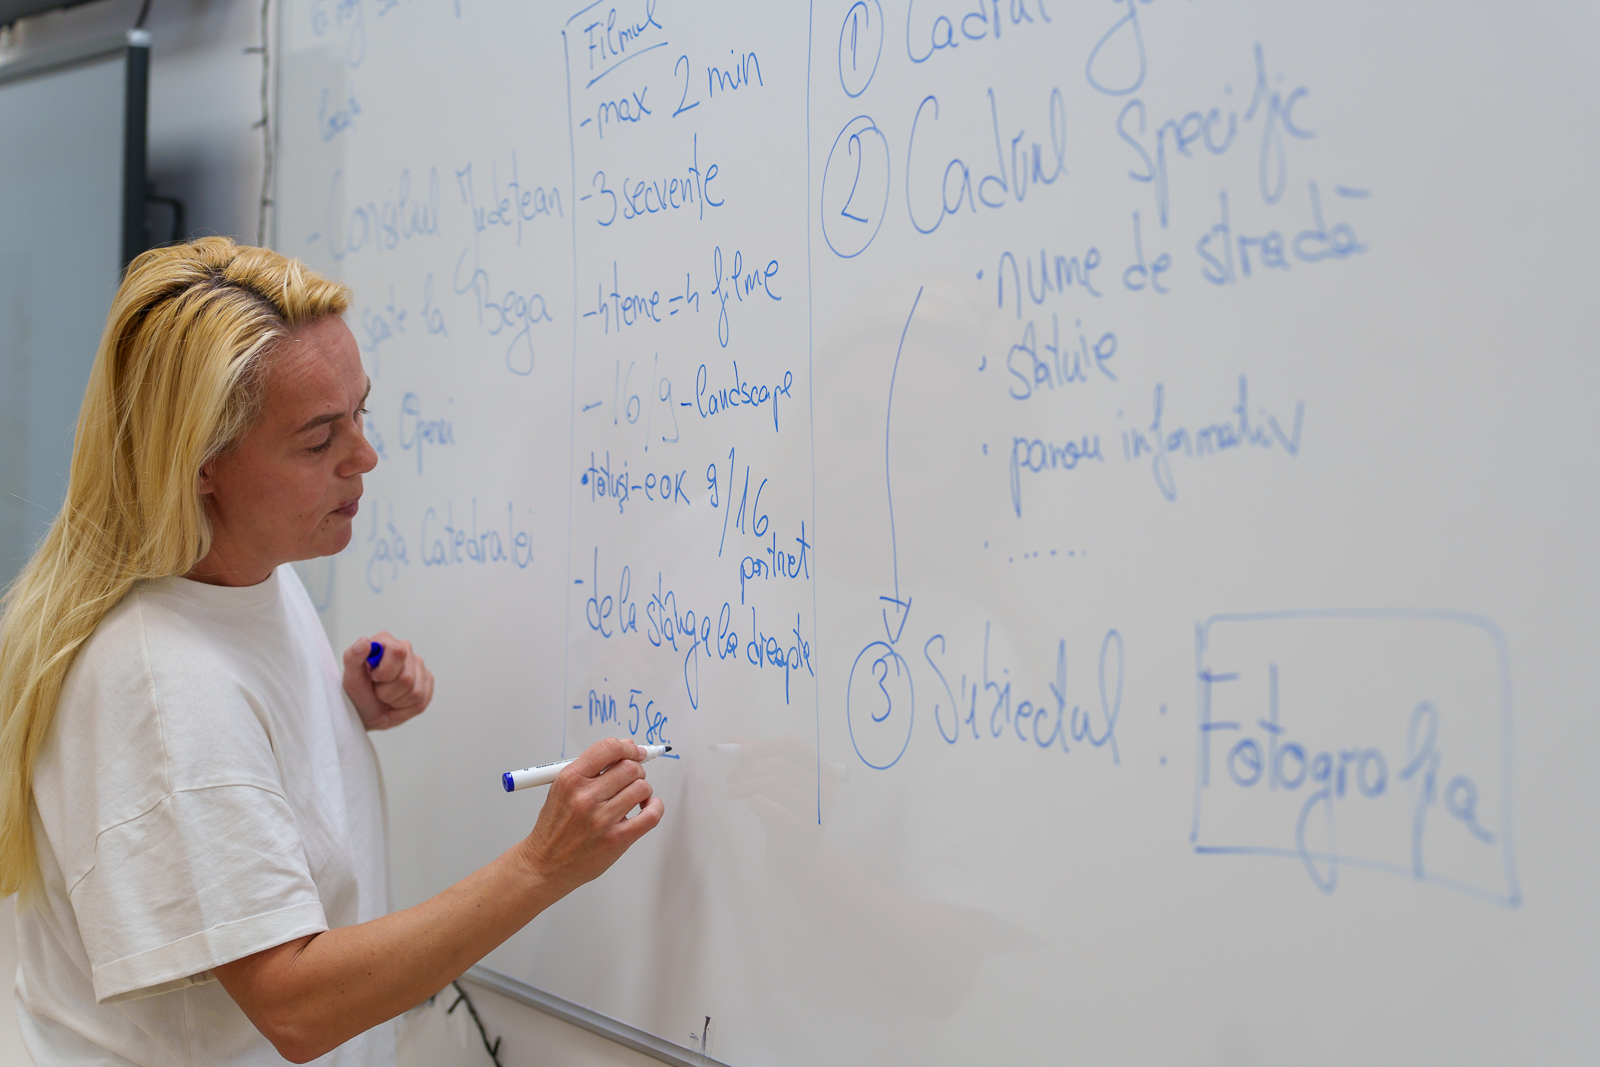 - Consiliul Județean
spate la Bega
Operei
fața Catedralei
Filmul
- max 2 min
- 3 secvențe
- 4 teme = 4 filme
- 16/9 - landscape
• totuși - e OK 9/16
portret
- de la stânga la dreapta
- min. 5 sec.
1 Cadrul
2 Cadrul Specific
• nume de stradă
• statuie
• panou informativ
• ......
3 Subiectul : Fotografia